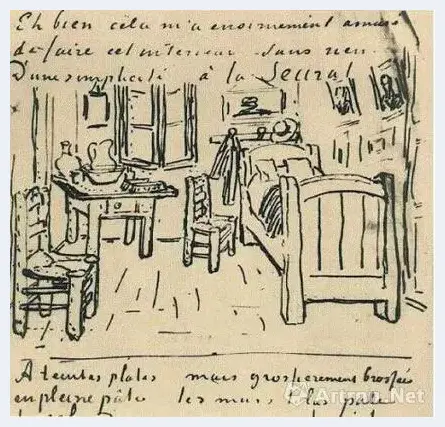 Eh bien cela m'a enormément amusé
de faire cet interieur sans rien
D'une simplicité à la Seurat
A teintes plates mais grossierement brossées
en pleine pâte les murs lilas pale